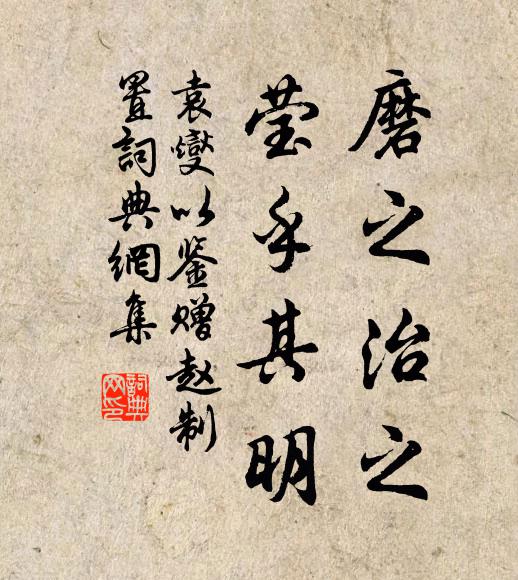 磨之治之
莹乎其明
袁燮以鉴赠赵制
置詞典網集
詞典
网印